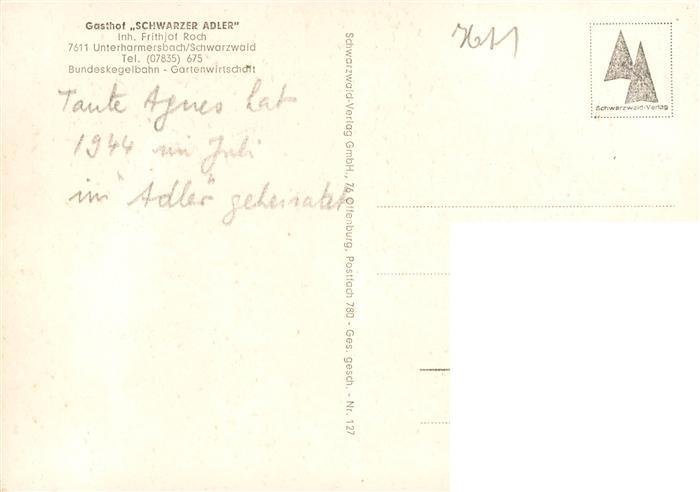 Gasthof „SCHWARZER ADLER"
Inh. Frithjof Roch
7611 Unterharmersbach/Schwarzwald
Tel. (07835) 675
Bundeskegelbahn - Gartenwirtschaft
Tante Agnes hat
1944 im Juli
im "Adler" geheiratet
Schwarzwald-Verlag GmbH., 76 Offenburg, Postfach 780 - Ges. gesch. - Nr. 127
Schwarzwald-Verlag